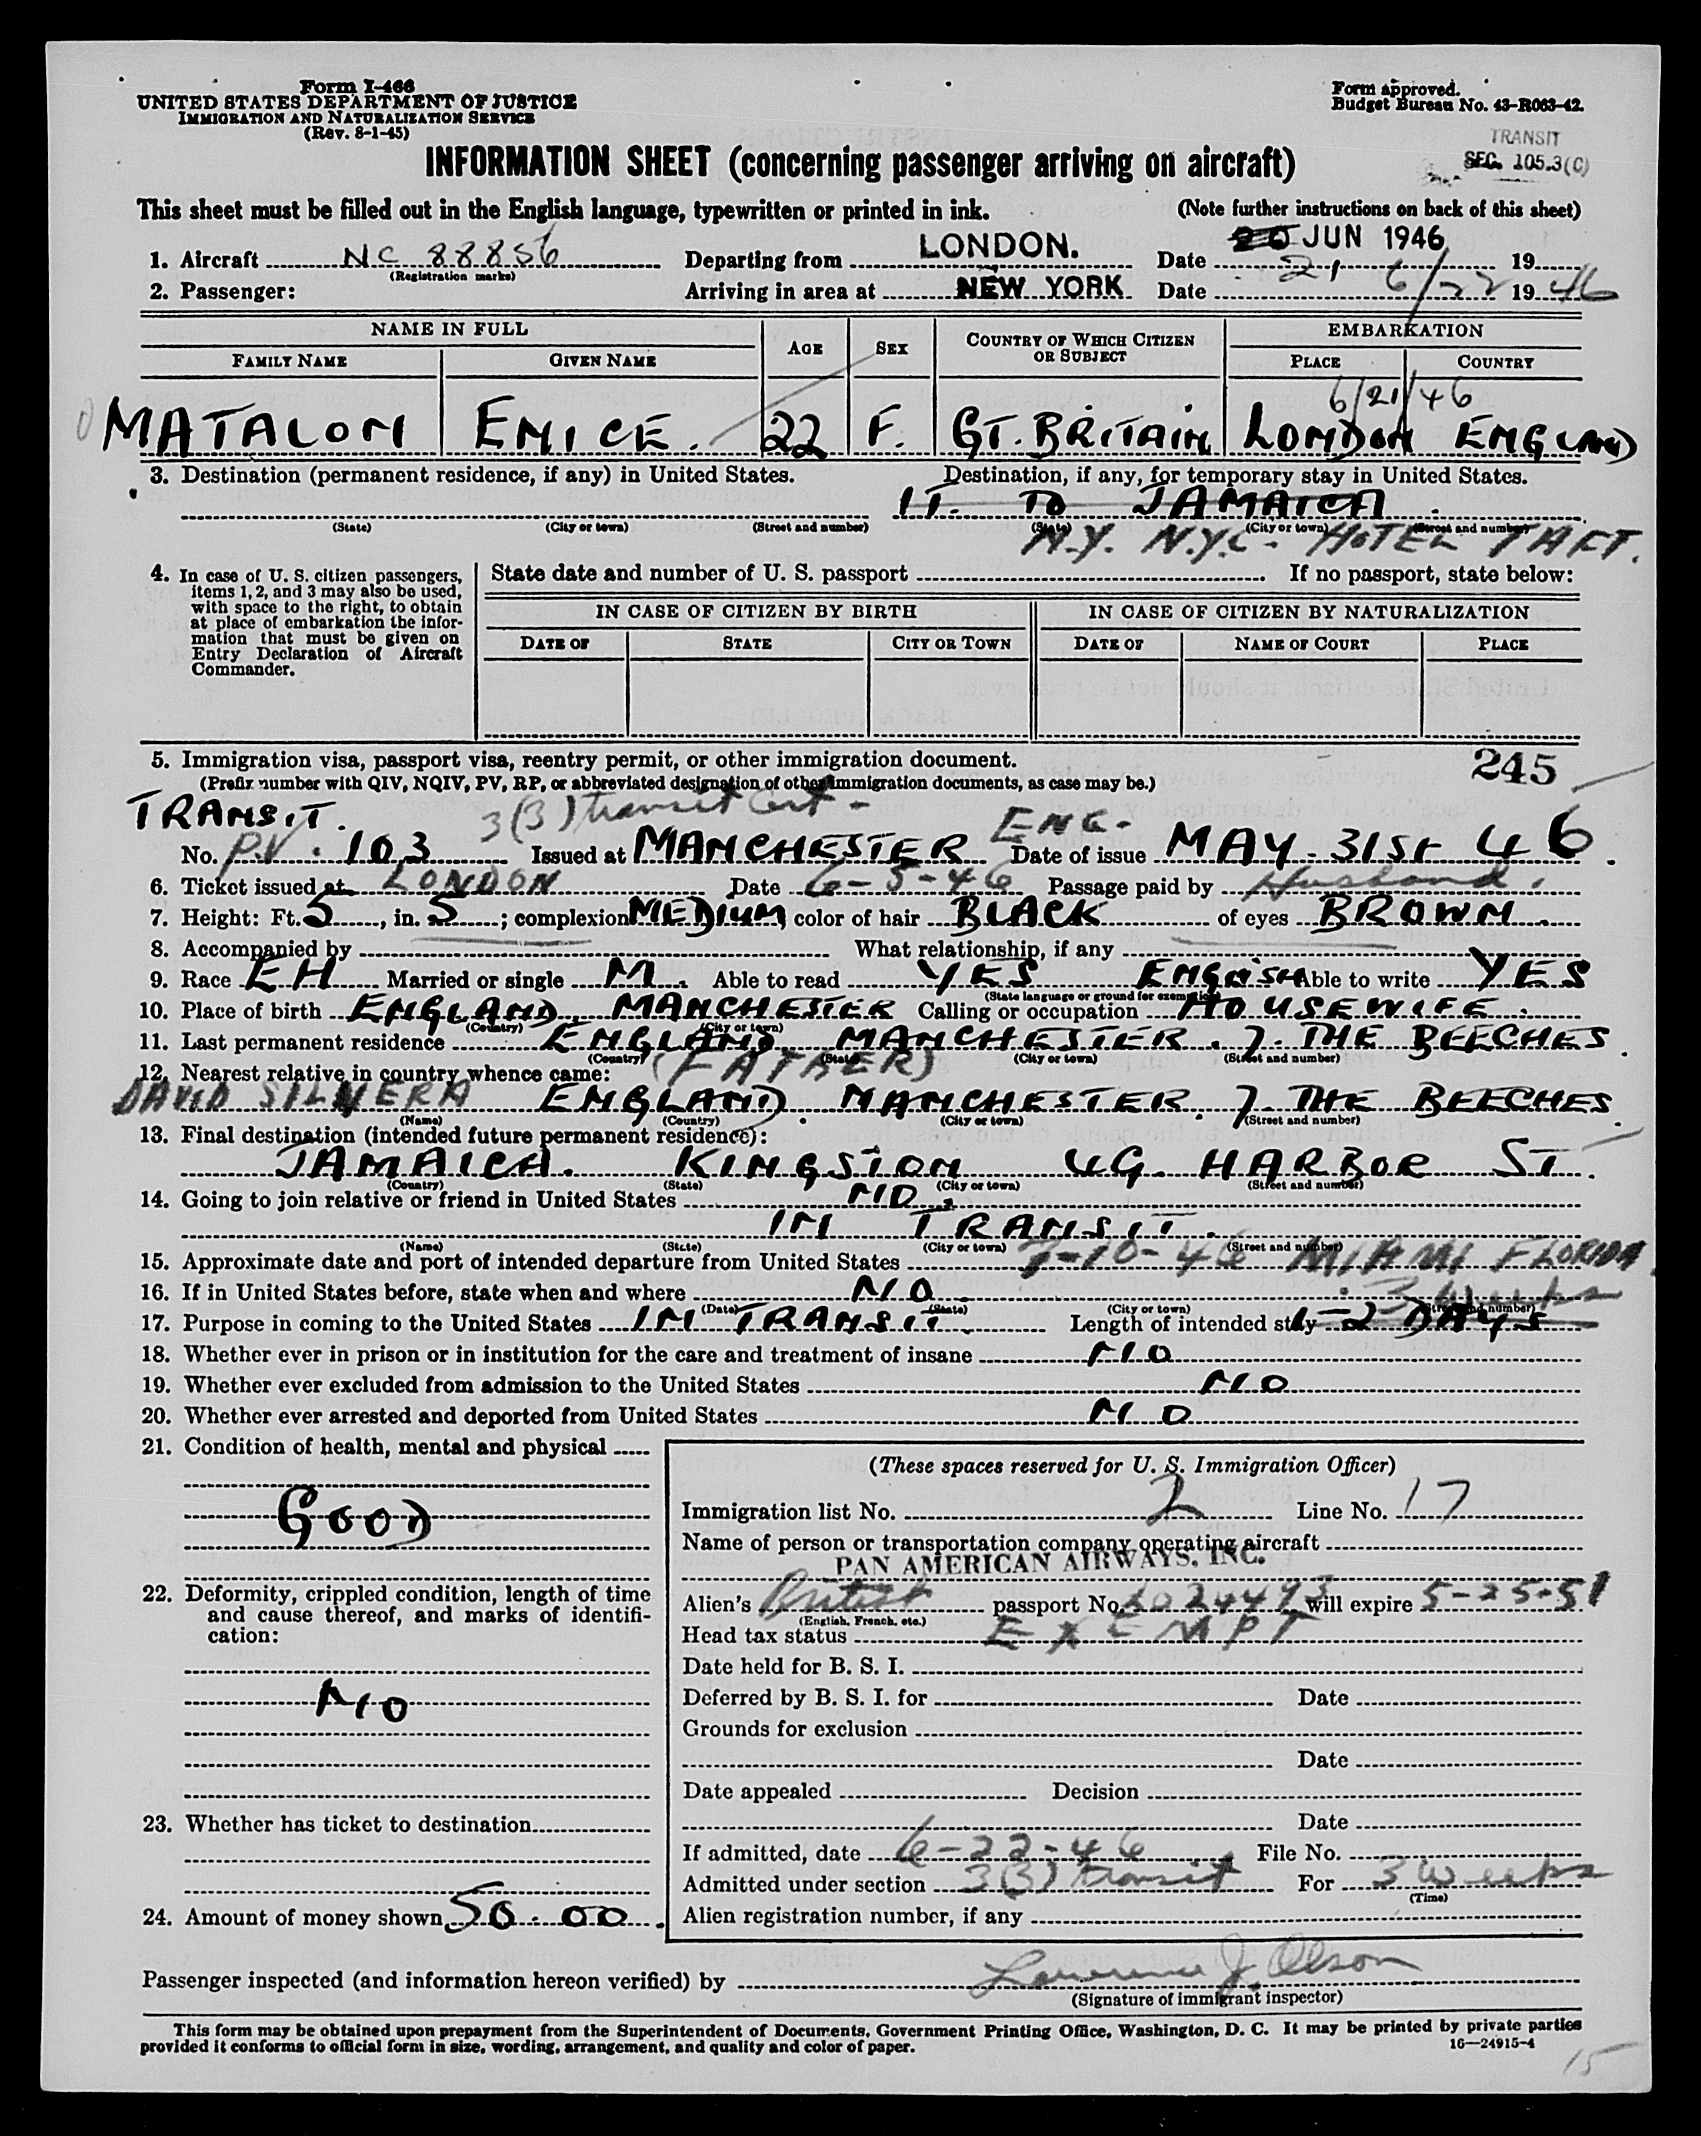 Form I-466
UNITED STATES DEPARTMENT OF JUSTICE
IMMIGRATION AND NATURALIZATION SERVICE
(Rev. 8-1-45)
Form approved.
Budget Bureau No. 43-R063-42.
TRANSIT
SEC. 105.3(C)
INFORMATION SHEET (concerning passenger arriving on aircraft)
This sheet must be filled out in the English language, typewritten or printed in ink. (Note further instructions on back of this sheet)
1. Aircraft NC 88856 Departing from LONDON. Date 20 JUN 1946 19
(Registration marks) 21
2. Passenger: Arriving in area at NEW YORK Date 6/22 1946
NAME IN FULL AGE SEX COUNTRY OF WHICH CITIZEN OR SUBJECT EMBARKATION
FAMILY NAME GIVEN NAME PLACE COUNTRY
6/21/46
MATALON ENICE. 22 F. GT. BRITAIN LONDON ENGLAND
3. Destination (permanent residence, if any) in United States. Destination, if any, for temporary stay in United States.
IT. TO JAMAICA.
(State) (City or town) (Street and number) (State) (City or town) (Street and number)
N.Y. N.Y.C. HOTEL TAFT.
4. In case of U. S. citizen passengers, items 1, 2, and 3 may also be used, with space to the right, to obtain at place of embarkation the information that must be given on Entry Declaration of Aircraft Commander.
State date and number of U. S. passport. If no passport, state below:
IN CASE OF CITIZEN BY BIRTH IN CASE OF CITIZEN BY NATURALIZATION
DATE OF STATE CITY OR TOWN DATE OF NAME OF COURT PLACE
5. Immigration visa, passport visa, reentry permit, or other immigration document. 245
(Prefix number with QIV, NQIV, PV, RP, or abbreviated designation of other immigration documents, as case may be.)
TRANSIT. 3(3) transit Cert - ENG.
No. P.V. 103 Issued at MANCHESTER Date of issue MAY. 31st 46.
6. Ticket issued at LONDON Date 6-5-46 Passage paid by Husband.
7. Height: Ft. 5, in. 5; complexion MEDIUM, color of hair BLACK of eyes BROWN.
8. Accompanied by What relationship, if any
9. Race EH Married or single M. Able to read YES ENGLISH Able to write YES
(State language or ground for exemption)
10. Place of birth ENGLAND, MANCHESTER Calling or occupation HOUSEWIFE.
(Country) (City or town)
11. Last permanent residence ENGLAND MANCHESTER. 7. THE BEECHES.
(Country) (State) (City or town) (Street and number)
12. Nearest relative in country whence came: (FATHER)
DAVID SILVERA ENGLAND. MANCHESTER. 7. THE BEECHES.
(Name) (Country) (City or town) (Street and number)
13. Final destination (intended future permanent residence):
JAMAICA. KINGSTON 4G. HARBOR ST.
(Country) (State) (City or town) (Street and number)
14. Going to join relative or friend in United States NO.
IN TRANSIT.
(Name) (State) (City or town) (Street and number)
15. Approximate date and port of intended departure from United States 7-10-46 MIAMI FLORIDA.
16. If in United States before, state when and where NO.
(Date) (State) (City or town) (Street and number)
3 Weeks
17. Purpose in coming to the United States IN TRANSIT. Length of intended stay 1-2 DAYS
18. Whether ever in prison or in institution for the care and treatment of insane NO
19. Whether ever excluded from admission to the United States NO
20. Whether ever arrested and deported from United States NO
21. Condition of health, mental and physical
GOOD
22. Deformity, crippled condition, length of time and cause thereof, and marks of identification:
NO
23. Whether has ticket to destination
24. Amount of money shown 50.00.
(These spaces reserved for U. S. Immigration Officer)
Immigration list No. 2 Line No. 17
Name of person or transportation company operating aircraft
PAN AMERICAN AIRWAYS, INC.
Alien's British passport No. L024493 will expire 5-25-51
(English, French, etc.)
Head tax status EXEMPT
Date held for B. S. I.
Deferred by B. S. I. for Date
Grounds for exclusion
Date
Date appealed Decision
Date
If admitted, date 6-22-46 File No.
Admitted under section 3(3) transit For 3 Weeks
(Time)
Alien registration number, if any
Passenger inspected (and information hereon verified) by Lawrence J. Olson
(Signature of immigrant inspector)
This form may be obtained upon prepayment from the Superintendent of Documents, Government Printing Office, Washington, D. C. It may be printed by private parties
provided it conforms to official form in size, wording, arrangement, and quality and color of paper. 16—24915-4
15